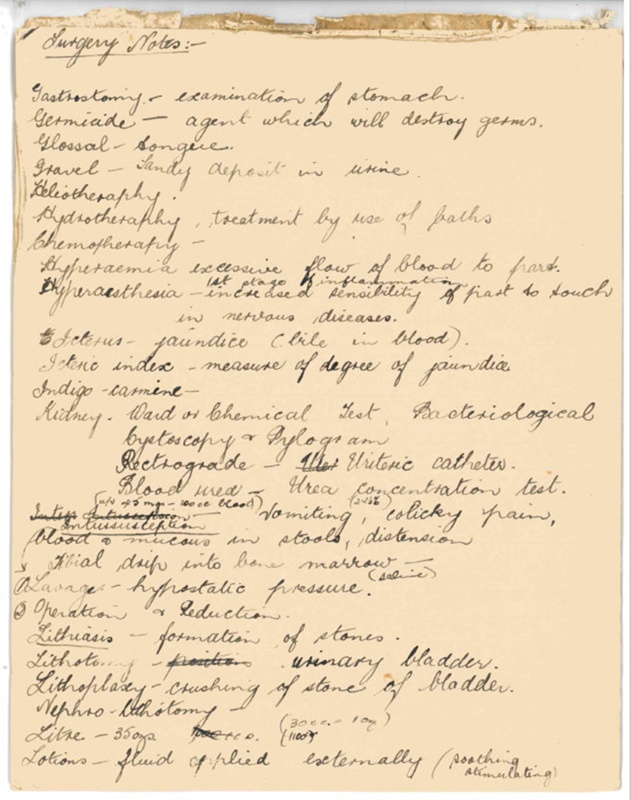 Surgery Notes:-
Gastrostomy - examination of stomach.
Germicide - agent which will destroy germs.
Glossal - tongue.
Gravel - Sandy deposit in urine.
Heliotheraphy.
Hydrotheraphy, treatment by use of baths
Chemotheraphy -
Hyperaemia excessive flow of blood to part.
1st stage of inflammation
Hyperaesthesia - increased sensibility of part to touch
in nervous diseases.
Icterus - jaundice (bile in blood).
Icteric index - measure of degree of jaundice
Indigo-carmine -
Kidney - Ward or Chemical Test, Bacteriological
Cystoscopy & Pylogram
Rectrograde - Uriteric catheter.
Blood urea - Urea concentration test.
Vomiting, colicky pain,
Intussusception
blood & mucous in stools, distension
Tibial drip into bone marrow -
(saline)
① Lavage - hypostatic pressure.
② Operation & Reduction.
Lithiasis - formation of stones.
Lithotomy - position urinary bladder.
Litholaplaxy - crushing of stone of bladder.
Nephro-lithotomy -
(30cc. - 1oz)
Litre - 35ozs.
Lotions - fluid applied externally (soothing
stimulating)